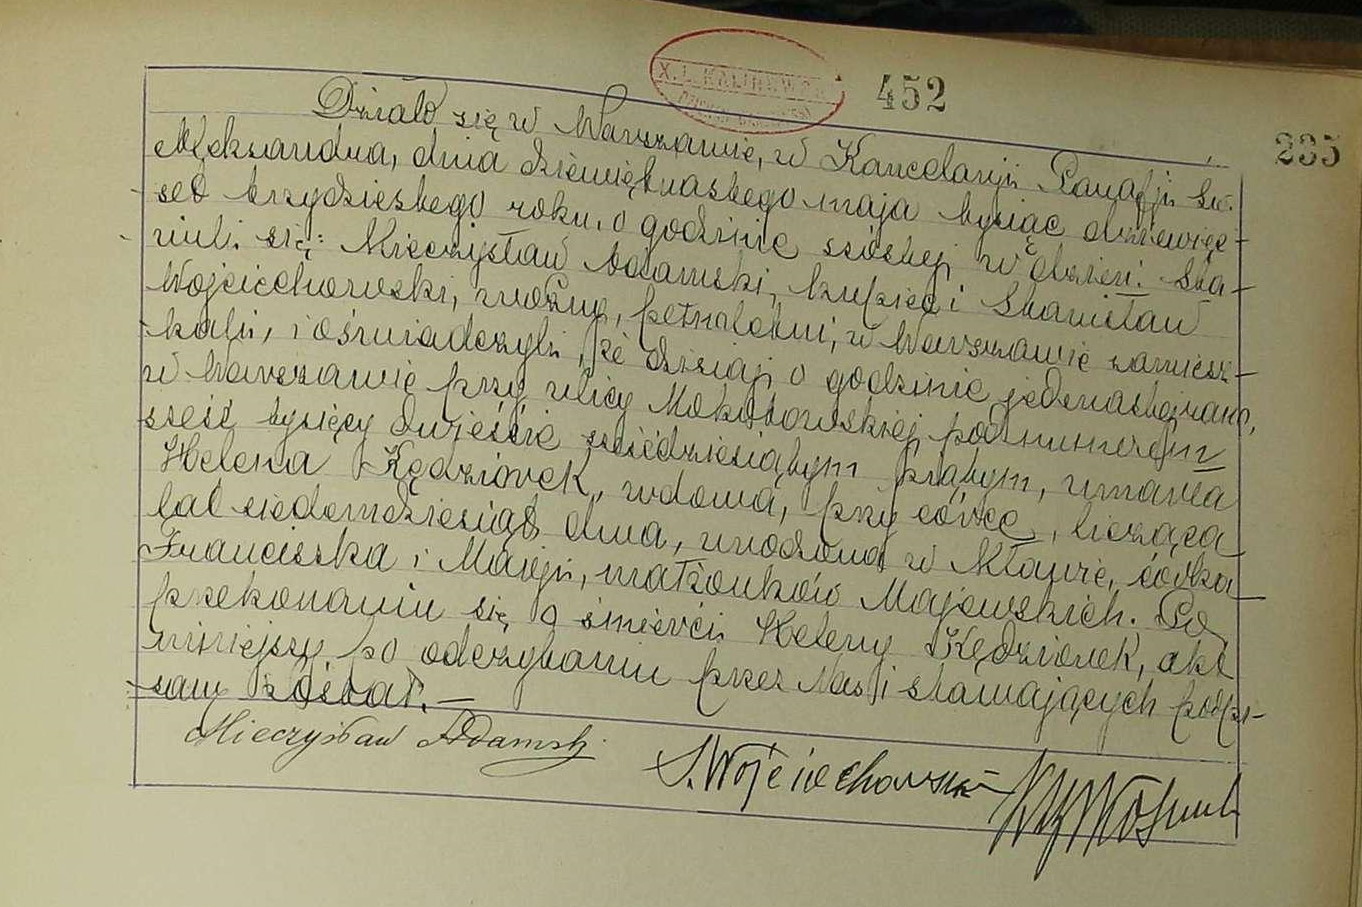 X. L. KALINOWSKI
452
235
Działo się w Warszawie, w Kancelaryi Parafji św.
Aleksandra, dnia dziewiętnastego maja tysiąc dziewięć-
set trzydziestego roku, o godzinie szóstej w dzień. Sta-
wili się: Mieczysław Adamski, kupiec i Stanisław
Wojciechowski, woźny, pełnoletni, w Warszawie zamiesz-
kali, i oświadczyli, że dzisiaj o godzinie jedenastej rano,
w Warszawie przy ulicy Mokotowskiej pod numerem
sześć tysięcy dwieście sześćdziesiątym piątym, umarła
Helena Kędziorek, wdowa, przy córce, licząca
lat siedemdziesiąt dwa, urodzona w Mławie, córka
Franciszka i Maryi, małżonków Majewskich. Po
przekonaniu się o śmierci Heleny Kędziorek, akt
niniejszy po odczytaniu przez Nas i stawających podpi-
sany został.—
Mieczysław Adamski
S. Wojciechowski